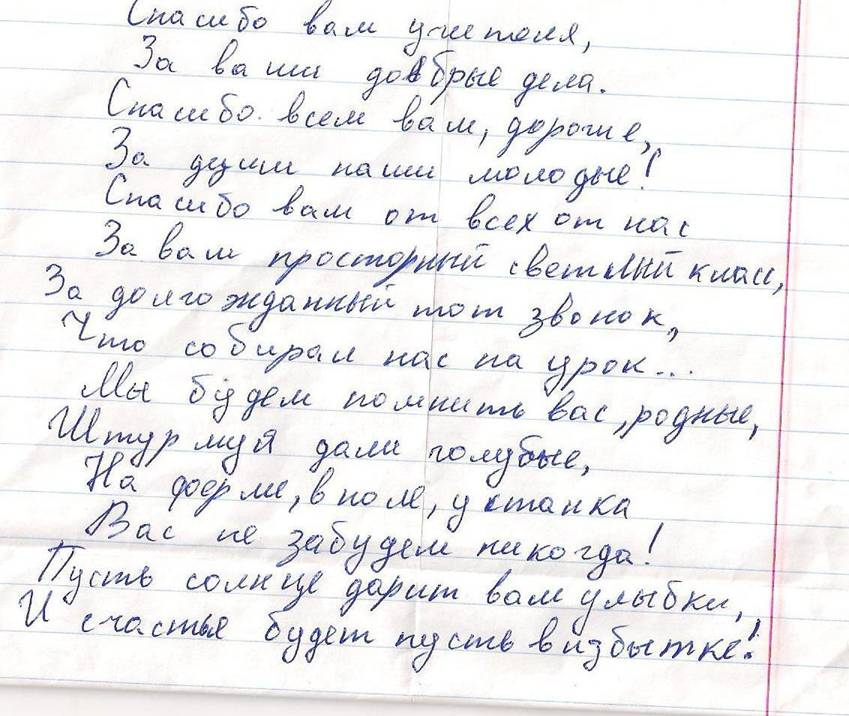 Спасибо вам учителя,
За ваши добрые дела.
Спасибо всем вам, дорогие,
За души наши молодые!
Спасибо вам от всех от нас
За вам просторный светлый класс,
За долгожданный тот звонок,
Что собирал нас на урок...
Мы будем помнить вас, родные,
Штурмуя дали голубые,
На ферме, в поле, у станка
Вас не забудем никогда!
Пусть солнце дарит вам улыбки,
И счастье будет пусть в избытке!